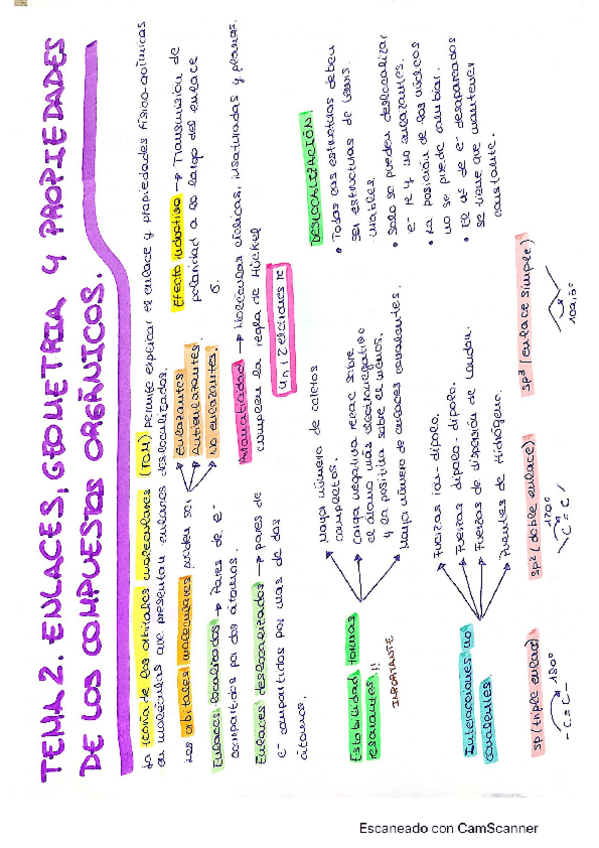 TEMA 2. ENLACES, GEOMETRIA Y PROPIEDADES
DE LOS COMPUESTOS ORGÁNICOS.
La teoría de los orbitales moleculares (TOM) permite explicar el enlace y propiedades físico-químicas
en moléculas que presentan enlaces deslocalizados.
Los orbitales moleculares pueden ser
Enlazantes
Antienlazantes.
No enlazantes.
Efecto inductivo → Transmisión de
polaridad a lo largo del enlace
σ.
Enlaces localizados → Pares de e-
compartidos por dos átomos.
Enlaces deslocalizados → pares de
e- compartidos por mas de dos
átomos.
Aromaticidad → Moléculas cíclicas, insaturadas y planas.
cumplen la regla de Hückel
4n+2 electrones π
Estabilidad formas
resonantes!!
IMPORTANTE
Mayor número de octetos
completos.
Carga negativa recae sobre
el átomo más electronegativo
y la positiva sobre el menos.
Mayor número de enlaces covalentes.
DESLOCALIZACIÓN:
• Todas las estructuras deben
ser estructuras de Lewis
viables.
• Solo se pueden deslocalizar
e- π y no enlazantes.
• La posición de los núcleos
no se puede cambiar.
• El nº de e- desapareados
se tiene que mantener
constante.
Interacciones no
covalentes.
Fuerzas ión-dipolo.
Fuerzas dipolo-dipolo.
Fuerzas de dispersión de London.
Puentes de Hidrógeno.
sp (triple enlace)
180º
- C ≡ C -
sp² (doble enlace)
120º
C = C
sp³ (enlace simple)
109,5º
Escaneado con CamScanner